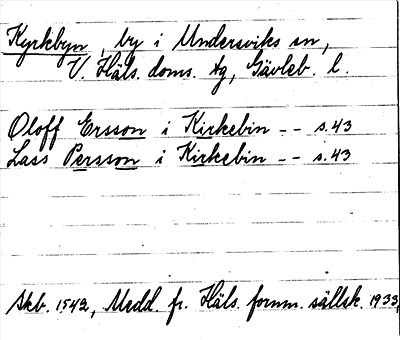 Kyrkbyn, by i Undersviks sn,
V. Häls. doms. tg, Gävleb. l.
Oloff Ersson i Kirkebin -- s. 43
Lass Persson i Kirkebin -- s. 43
Skb. 1542, Medd. fr. Häls. fornm. sällsk. 1933,